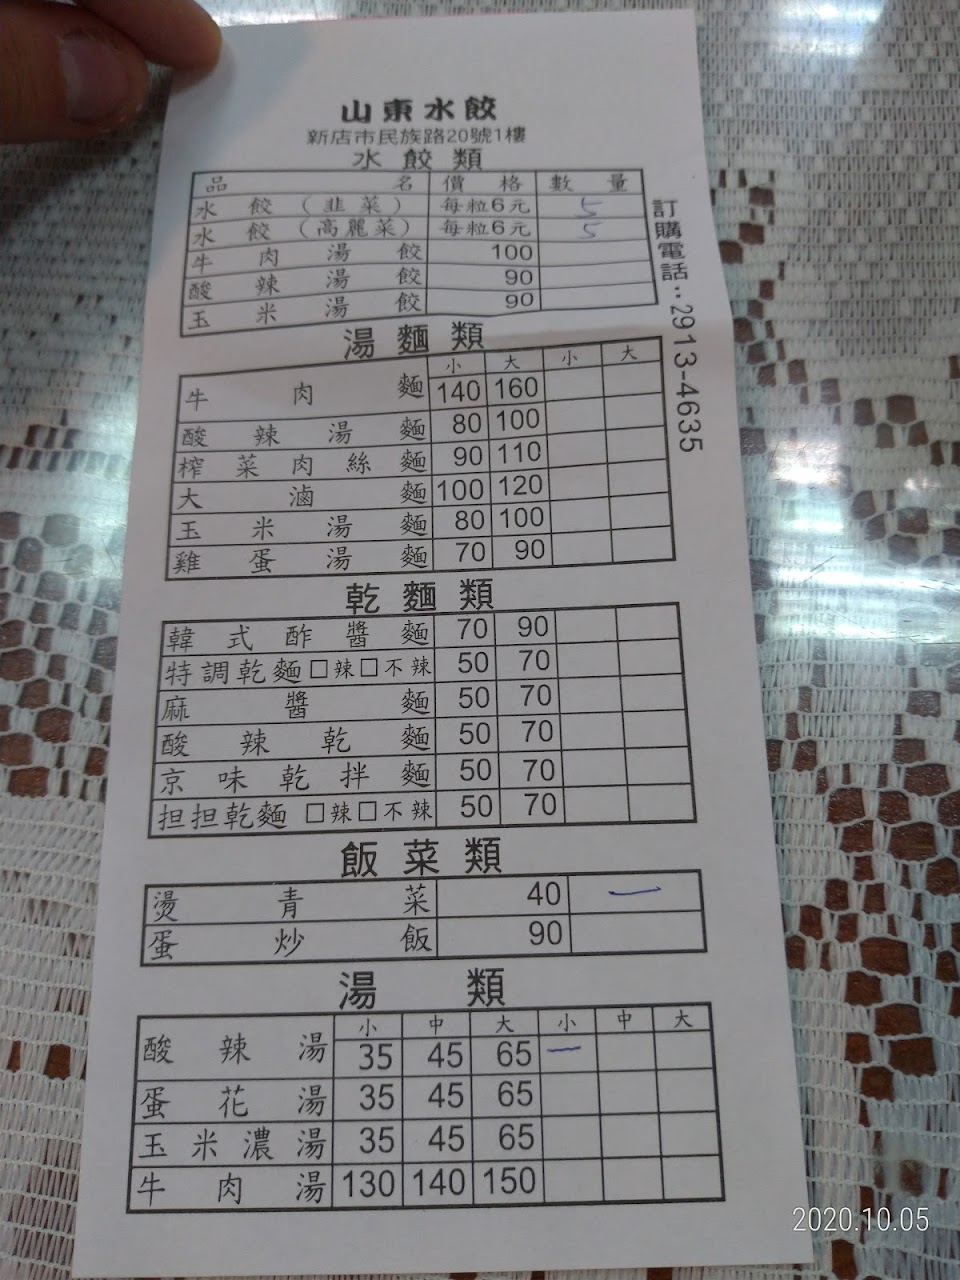 山東水餃
新店市民族路20號1樓
水餃類
品名 價格 數量
水餃(韭菜) 每粒6元 5
水餃(高麗菜) 每粒6元 5
牛肉湯餃 100
酸辣湯餃 90
玉米湯餃 90
訂購電話:2913-4635
湯麵類
小 大 小 大
牛肉麵 140 160
酸辣湯麵 80 100
榨菜肉絲麵 90 110
大滷麵 100 120
玉米湯麵 80 100
雞蛋湯麵 70 90
乾麵類
韓式酢醬麵 70 90
特調乾麵□辣□不辣 50 70
麻醬麵 50 70
酸辣乾麵 50 70
京味乾拌麵 50 70
担担乾麵□辣□不辣 50 70
飯菜類
燙青菜 40 一
蛋炒飯 90
湯類
小 中 大 小 中 大
酸辣湯 35 45 65 一
蛋花湯 35 45 65
玉米濃湯 35 45 65
牛肉湯 130 140 150
2020.10.05